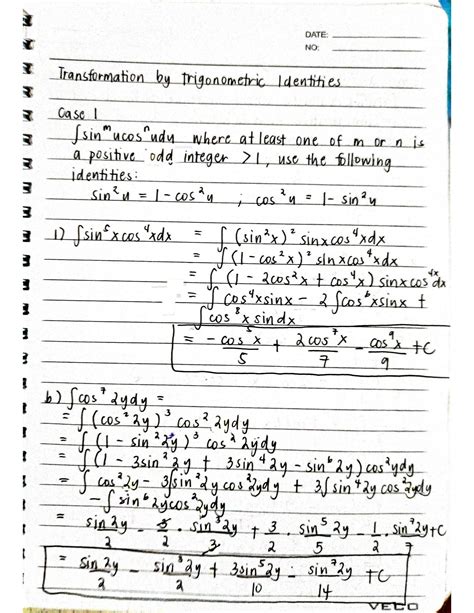 DATE:
NO:
Transformation by Trigonometric Identities
Case 1
∫sin^m u cos^n u du where at least one of m or n is
a positive odd integer > 1, use the following
identities:
sin²u = 1 - cos²u ; cos²u = 1 - sin²u
1) ∫sin⁵xcos⁴xdx = ∫(sin²x)² sinxcos⁴xdx
= ∫(1 - cos²x)² sinxcos⁴xdx
= ∫(1 - 2cos²x + cos⁴x) sinxcos⁴x dx
= ∫cos⁴xsinx - 2∫cos⁶xsinx +
∫cos⁸x sindx
= -cos⁵x/5 + 2cos⁷x/7 - cos⁹x/9 + C
b) ∫cos⁷2ydy =
= ∫(cos²2y)³ cos²2ydy
= ∫(1 - sin²2y)³ cos²2ydy
= ∫(1 - 3sin²2y + 3sin⁴2y - sin⁶2y) cos²ydy
= ∫cos²2y - 3∫sin²2y cos²2ydy + 3∫sin⁴2y cos²2ydy
- ∫sin⁶2ycos²2ydy
= sin2y/2 - 3/2 · sin³2y/3 + 3/2 · sin⁵2y/5 - 1/2 · sin⁷2y/7 + C
= sin2y/2 - sin³2y/2 + 3sin⁵2y/10 - sin⁷2y/14 + C
VECO